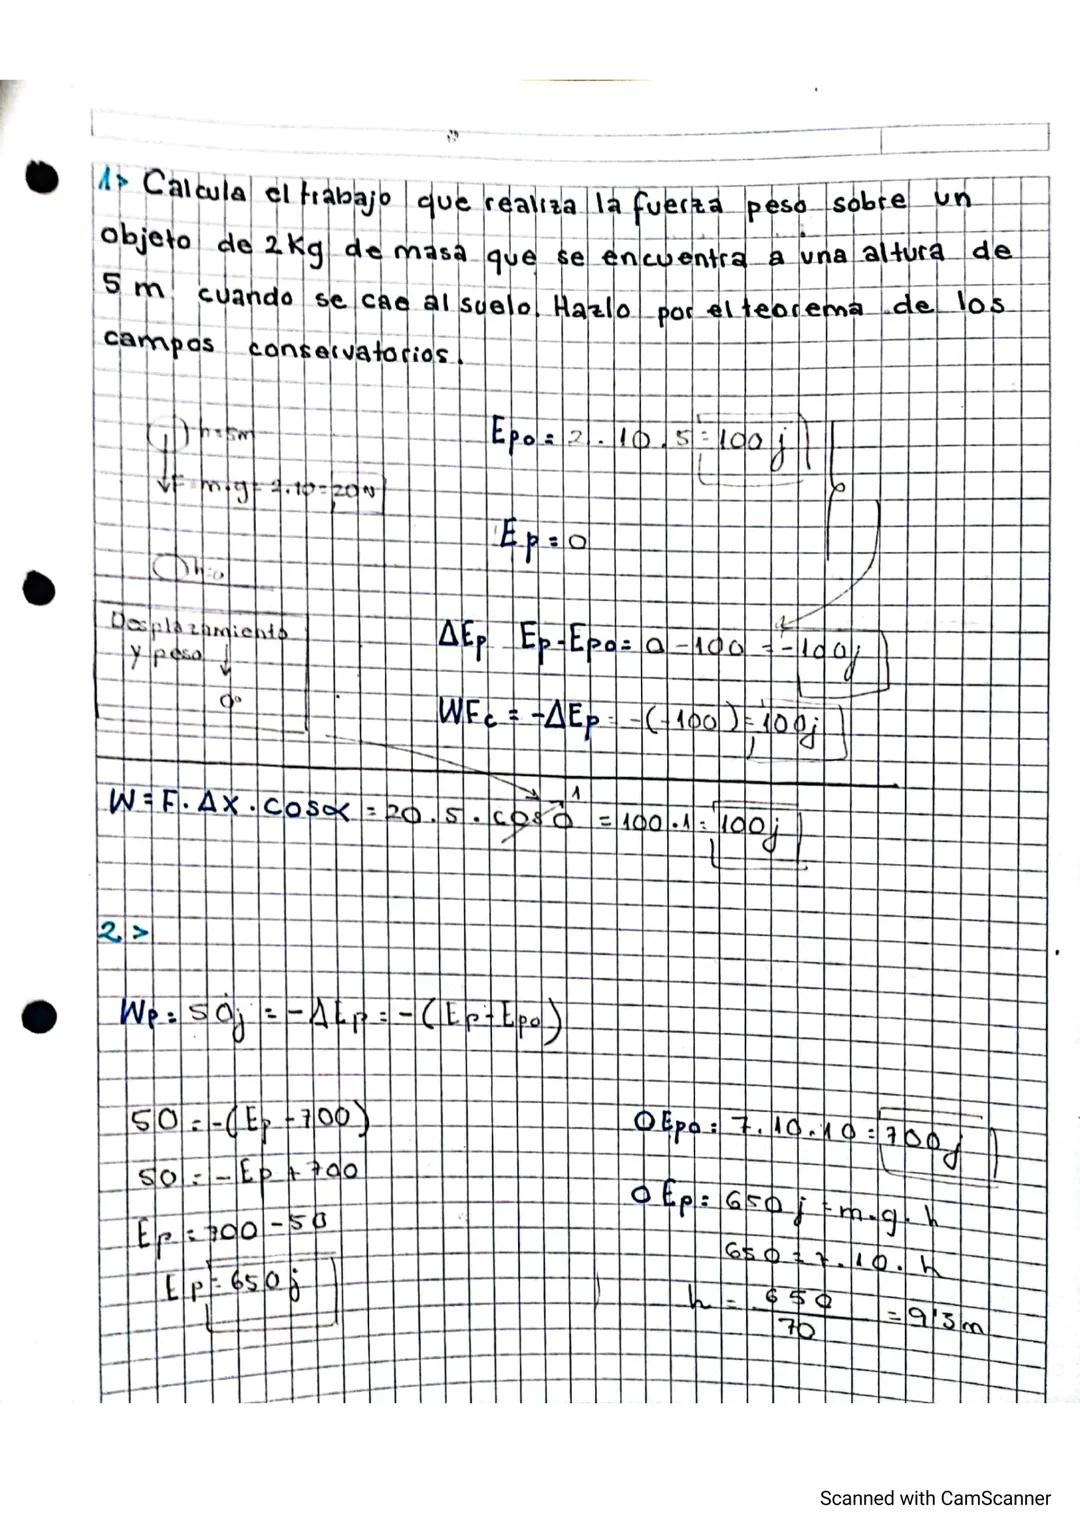 1> Calcula el trabajo que realiza la fuerza peso sobre un
objeto de 2Kg de masa que se encuentra a una altura de
5 m cuando se cae al suelo. Hazlo por el teorema de los
campos conservatorios.
h=5m
Epo = 2 . 10 . 5 = 100 j
F = m.g = 2.10 = 20N
Ep = 0
h=0
Desplazamiento
y peso ↓
0°
ΔEp Ep - Epo = 0 - 100 = -100j
WFc = -ΔEp = -(-100) = 100j
W = F. ΔX . cosα = 20 . 5 . cos 0 1 = 100 . 1 = 100j
2>
Wp = 50j = - ΔEp = - (Ep - Epo)
50 = -(Ep - 700)
50 = - Ep + 700
Ep = 700 - 50
Ep = 650 j
O Epo = 7. 10. 10 = 700j
O Ep = 650 j = m.g. h
650 = 7. 10. h
h = 650/70 = 9'3m
Scanned with CamScanner